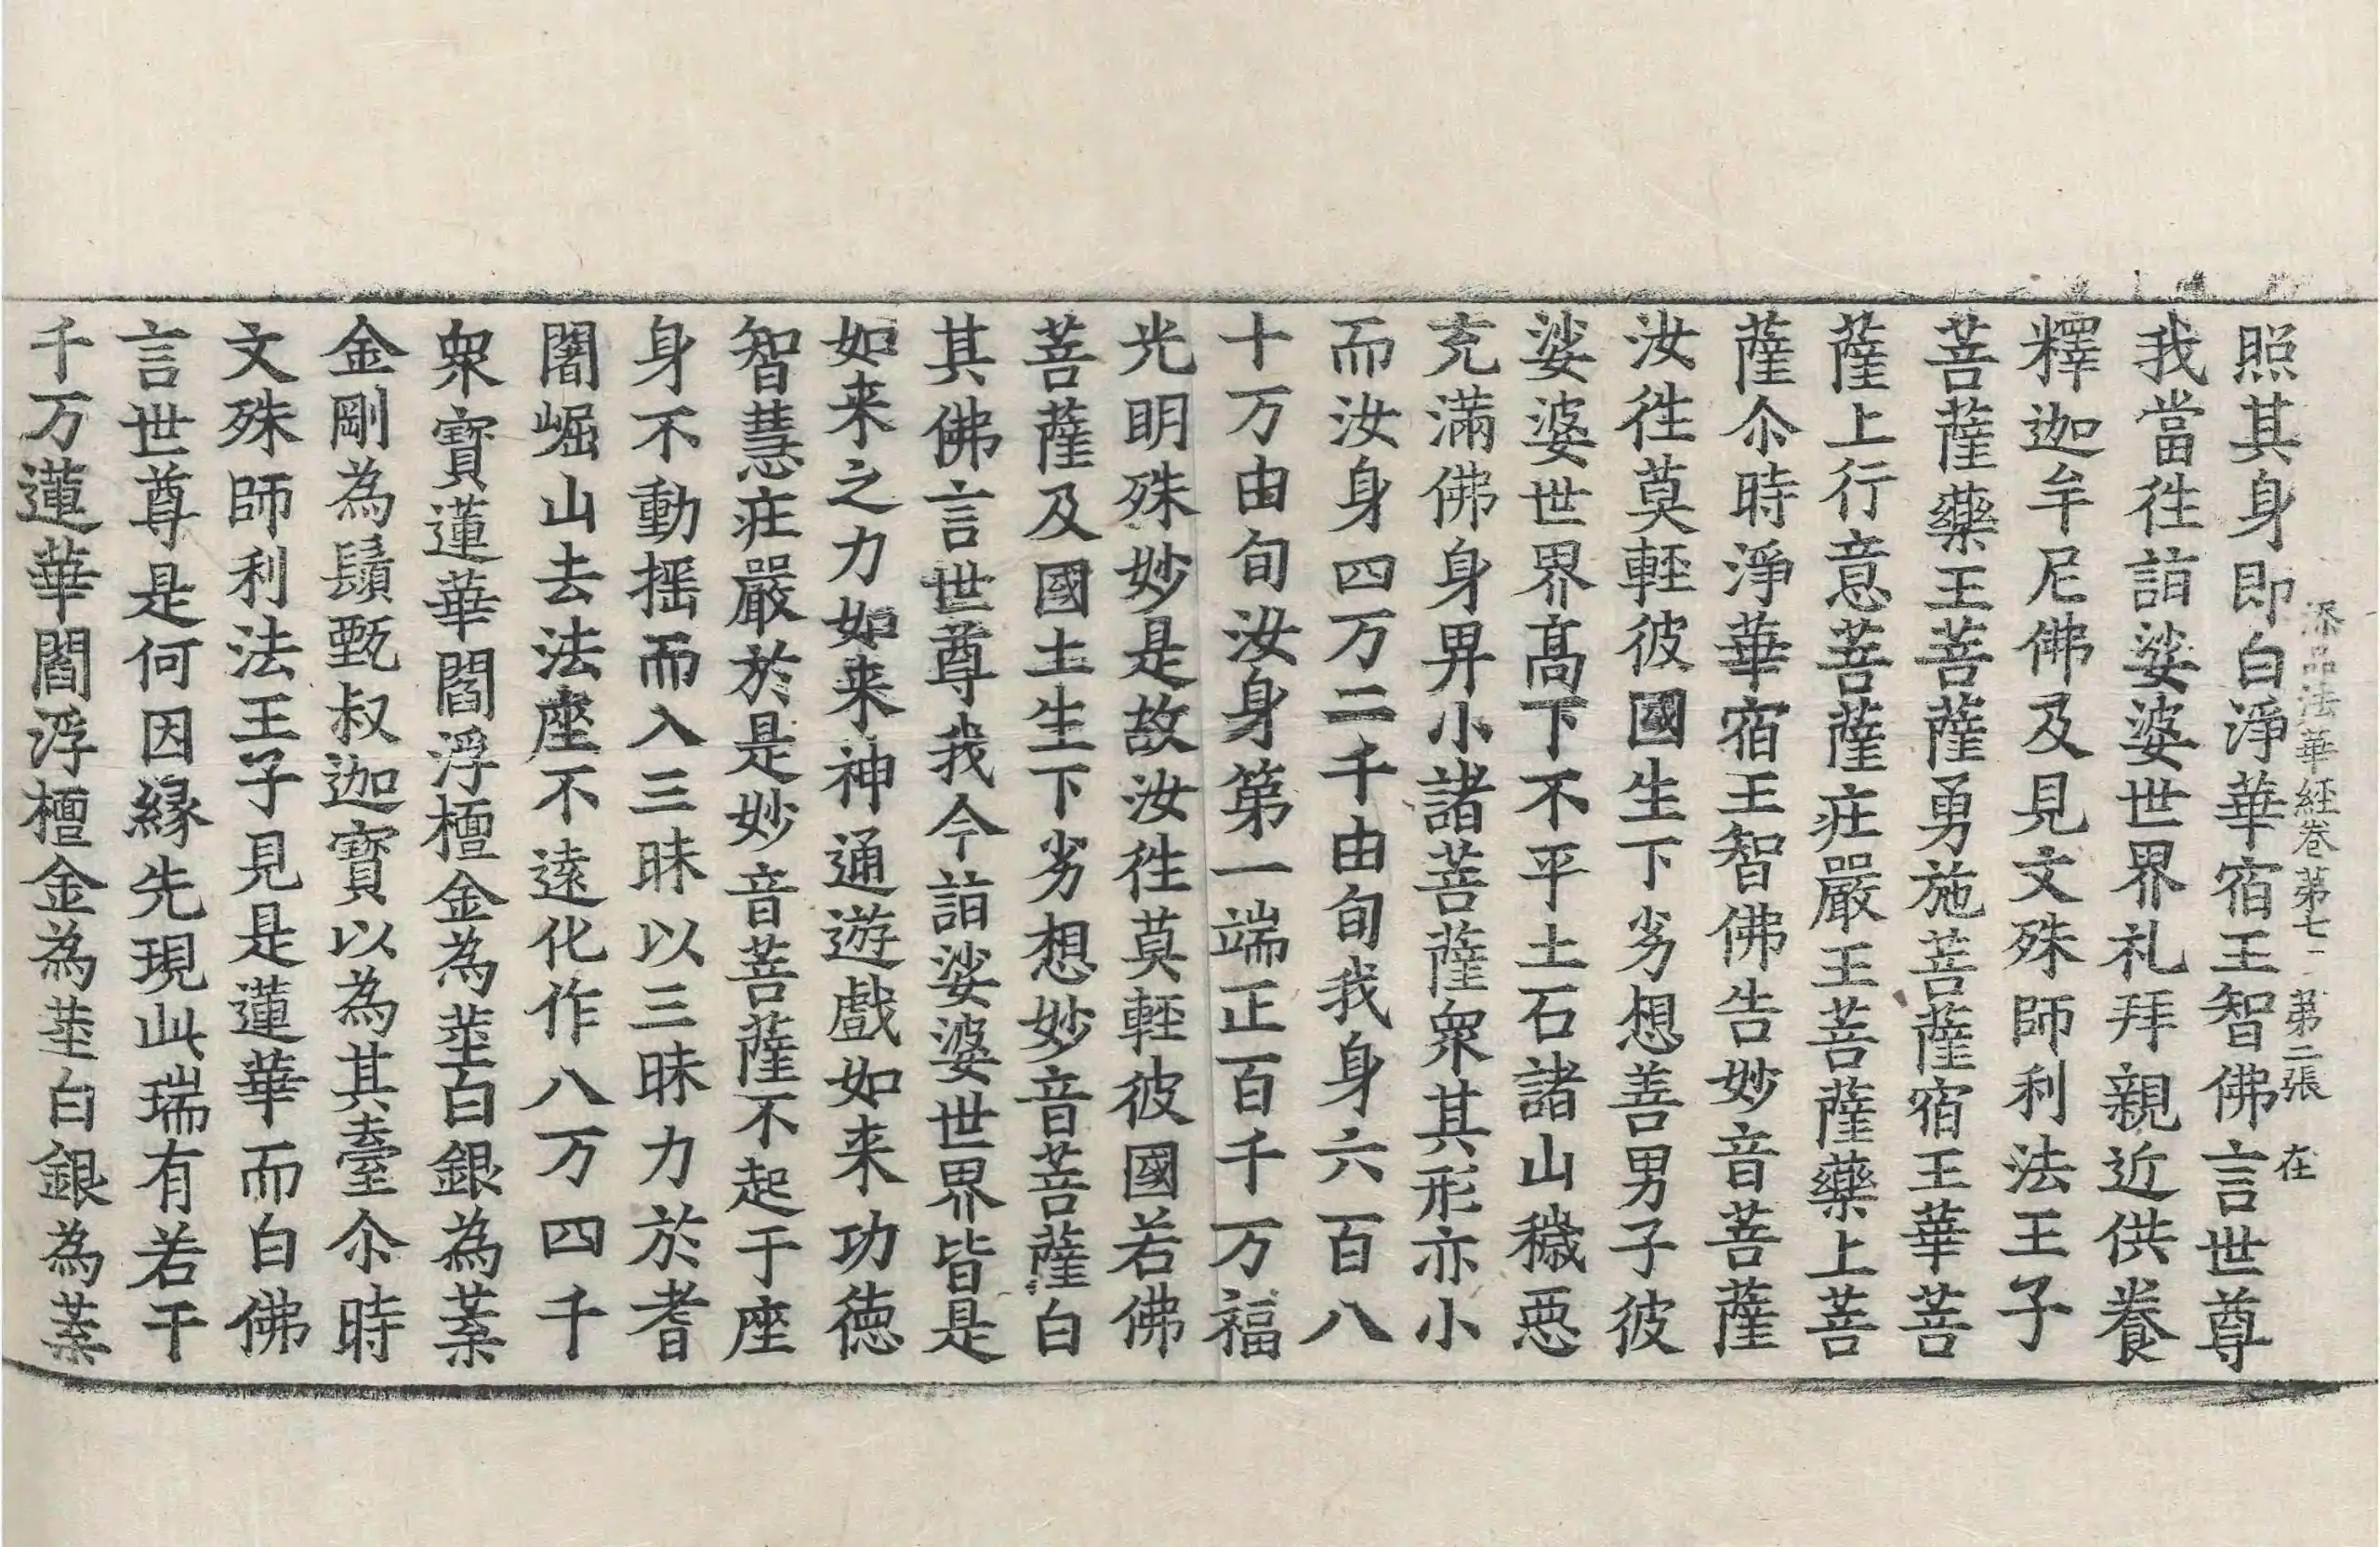 添品法華經卷第七 第二張 在
照其身即白淨華宿王智佛言世尊
我當徃詣娑婆世界礼拜親近供養
釋迦牟尼佛及見文殊師利法王子
菩薩藥王菩薩勇施菩薩宿王華菩
薩上行意菩薩莊嚴王菩薩藥上菩
薩尒時淨華宿王智佛告妙音菩薩
汝徃莫輕彼國生下劣想善男子彼
娑婆世界髙下不平土石諸山穢惡
充滿佛身畀小諸菩薩衆其形亦小
而汝身四万二千由旬我身六百八
十万由旬汝身第一端正百千万福
光明殊妙是故汝徃莫輕彼國若佛
菩薩及國土生下劣想妙音菩薩白
其佛言世尊我今詣娑婆世界皆是
如来之力如来神通遊戲如来功徳
智慧莊嚴於是妙音菩薩不起于座
身不動揺而入三昧以三昧力於耆
闍崛山去法座不遠化作八万四千
衆寶蓮華閻浮檀金為莖白銀為葉
金剛為鬚甄叔迦寶以為其臺尒時
文殊師利法王子見是蓮華而白佛
言世尊是何因縁先現此瑞有若干
千万蓮華閻浮檀金為莖白銀為葉